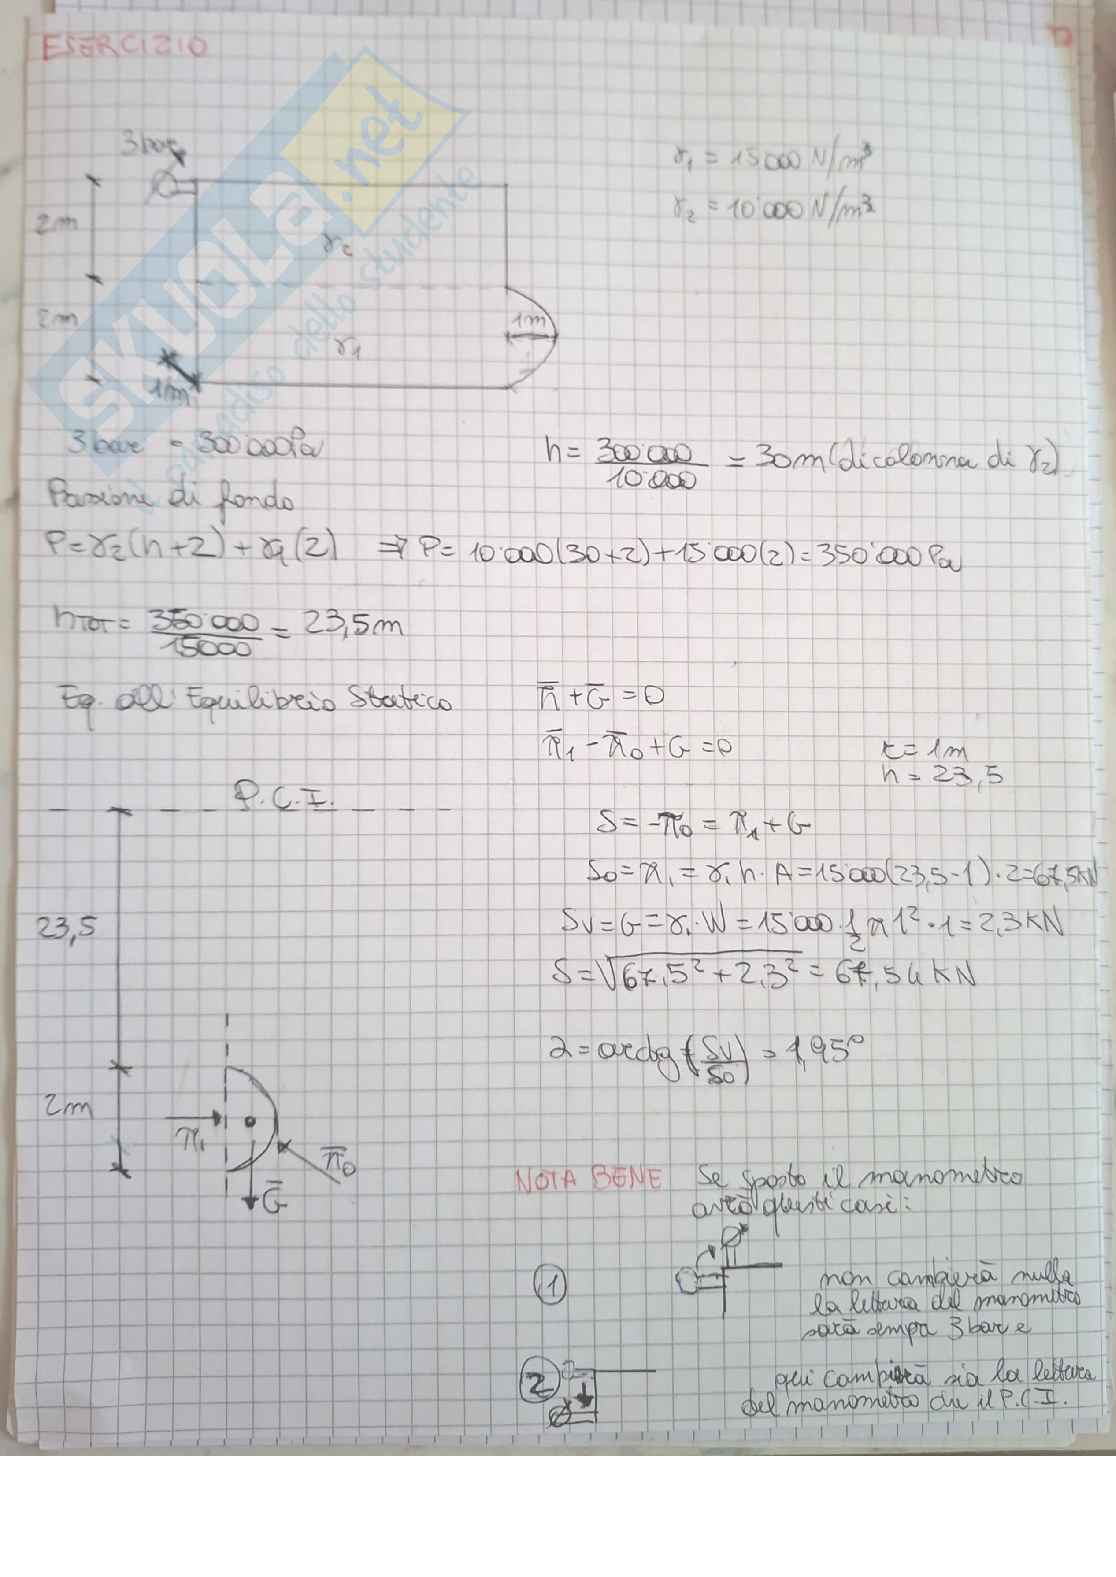 ESERCIZIO
3 bar
γ1 = 15'000 N/m³
γ2 = 10'000 N/m³
2m
γ2
2m
1m
γ1
1m
SKUOLA.net
dello studente
3 bar = 300'000 Pa
h = 300'000 / 10'000 = 30m (di colonna di γ2)
di fondo
P = γ2(h+2) + γ1(2) ⇒ P = 10'000(30+2) + 15'000(2) = 350'000 Pa
hTOT = 350'000 / 15000 = 23,5m
Eq. all'Equilibrio Statico
π̄ + Ḡ = 0
π̄1 - π̄0 + G = 0
r = 1m
h = 23,5
P.C.I.
S = -π0 = π1 + G
So = π1 = γ1 h · A = 15'000(23,5-1)·2 = 67,5KN
23,5
Sv = G = γ1·W = 15'000·1/2 π 1²·1 = 2,3 KN
S = √67,5² + 2,3² = 67,54 KN
α = arctg(Sv/So) = 1,95°
2m
π1
π̄0
Ḡ
NOTA BENE Se sposto il manometro
avrò questi casi:
1 non cambierà nulla
la lettura del manometro
sarà sempre 3 bar e
2 qui cambierà sia la lettura
del manometro che il P.C.I.